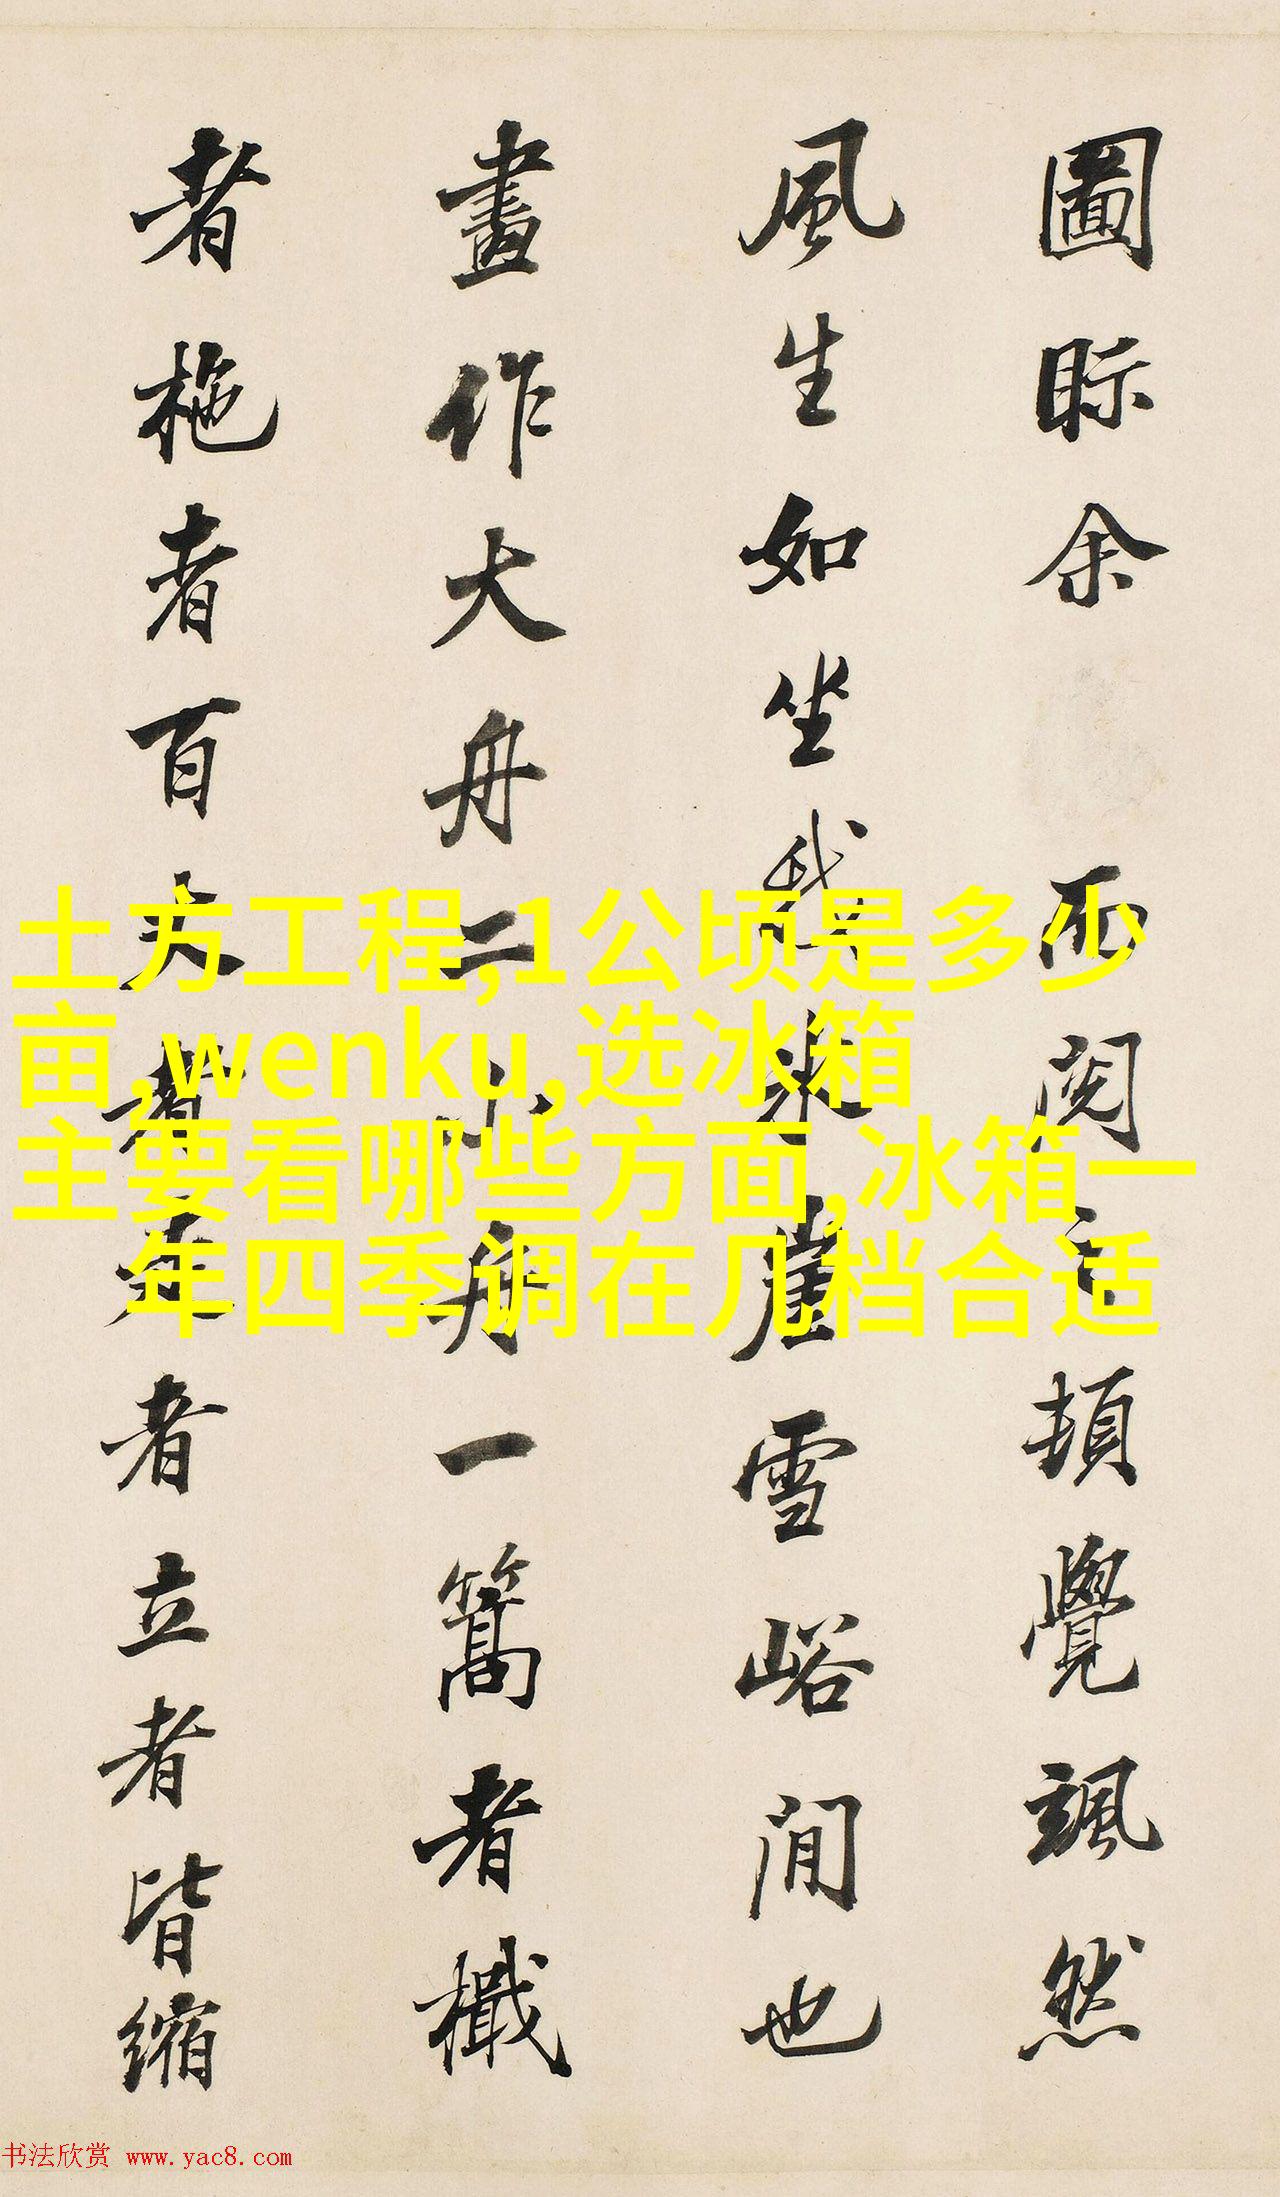 圖眎余 而閲之頓覺颯然
風生如坐我冰崖雪峪間也
畫作大舟二小舟一篙者檝
者柂者百丈者牽者立者皆縮
土方工程,1公顷是多少
亩,wenku,选冰箱
主要看哪些方面,冰箱一
年四季调在几档合适
书法欣赏 www.yac8.com